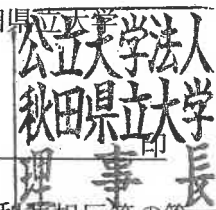 県立大学
公立大学法人
秋田県立大学
印
理事長